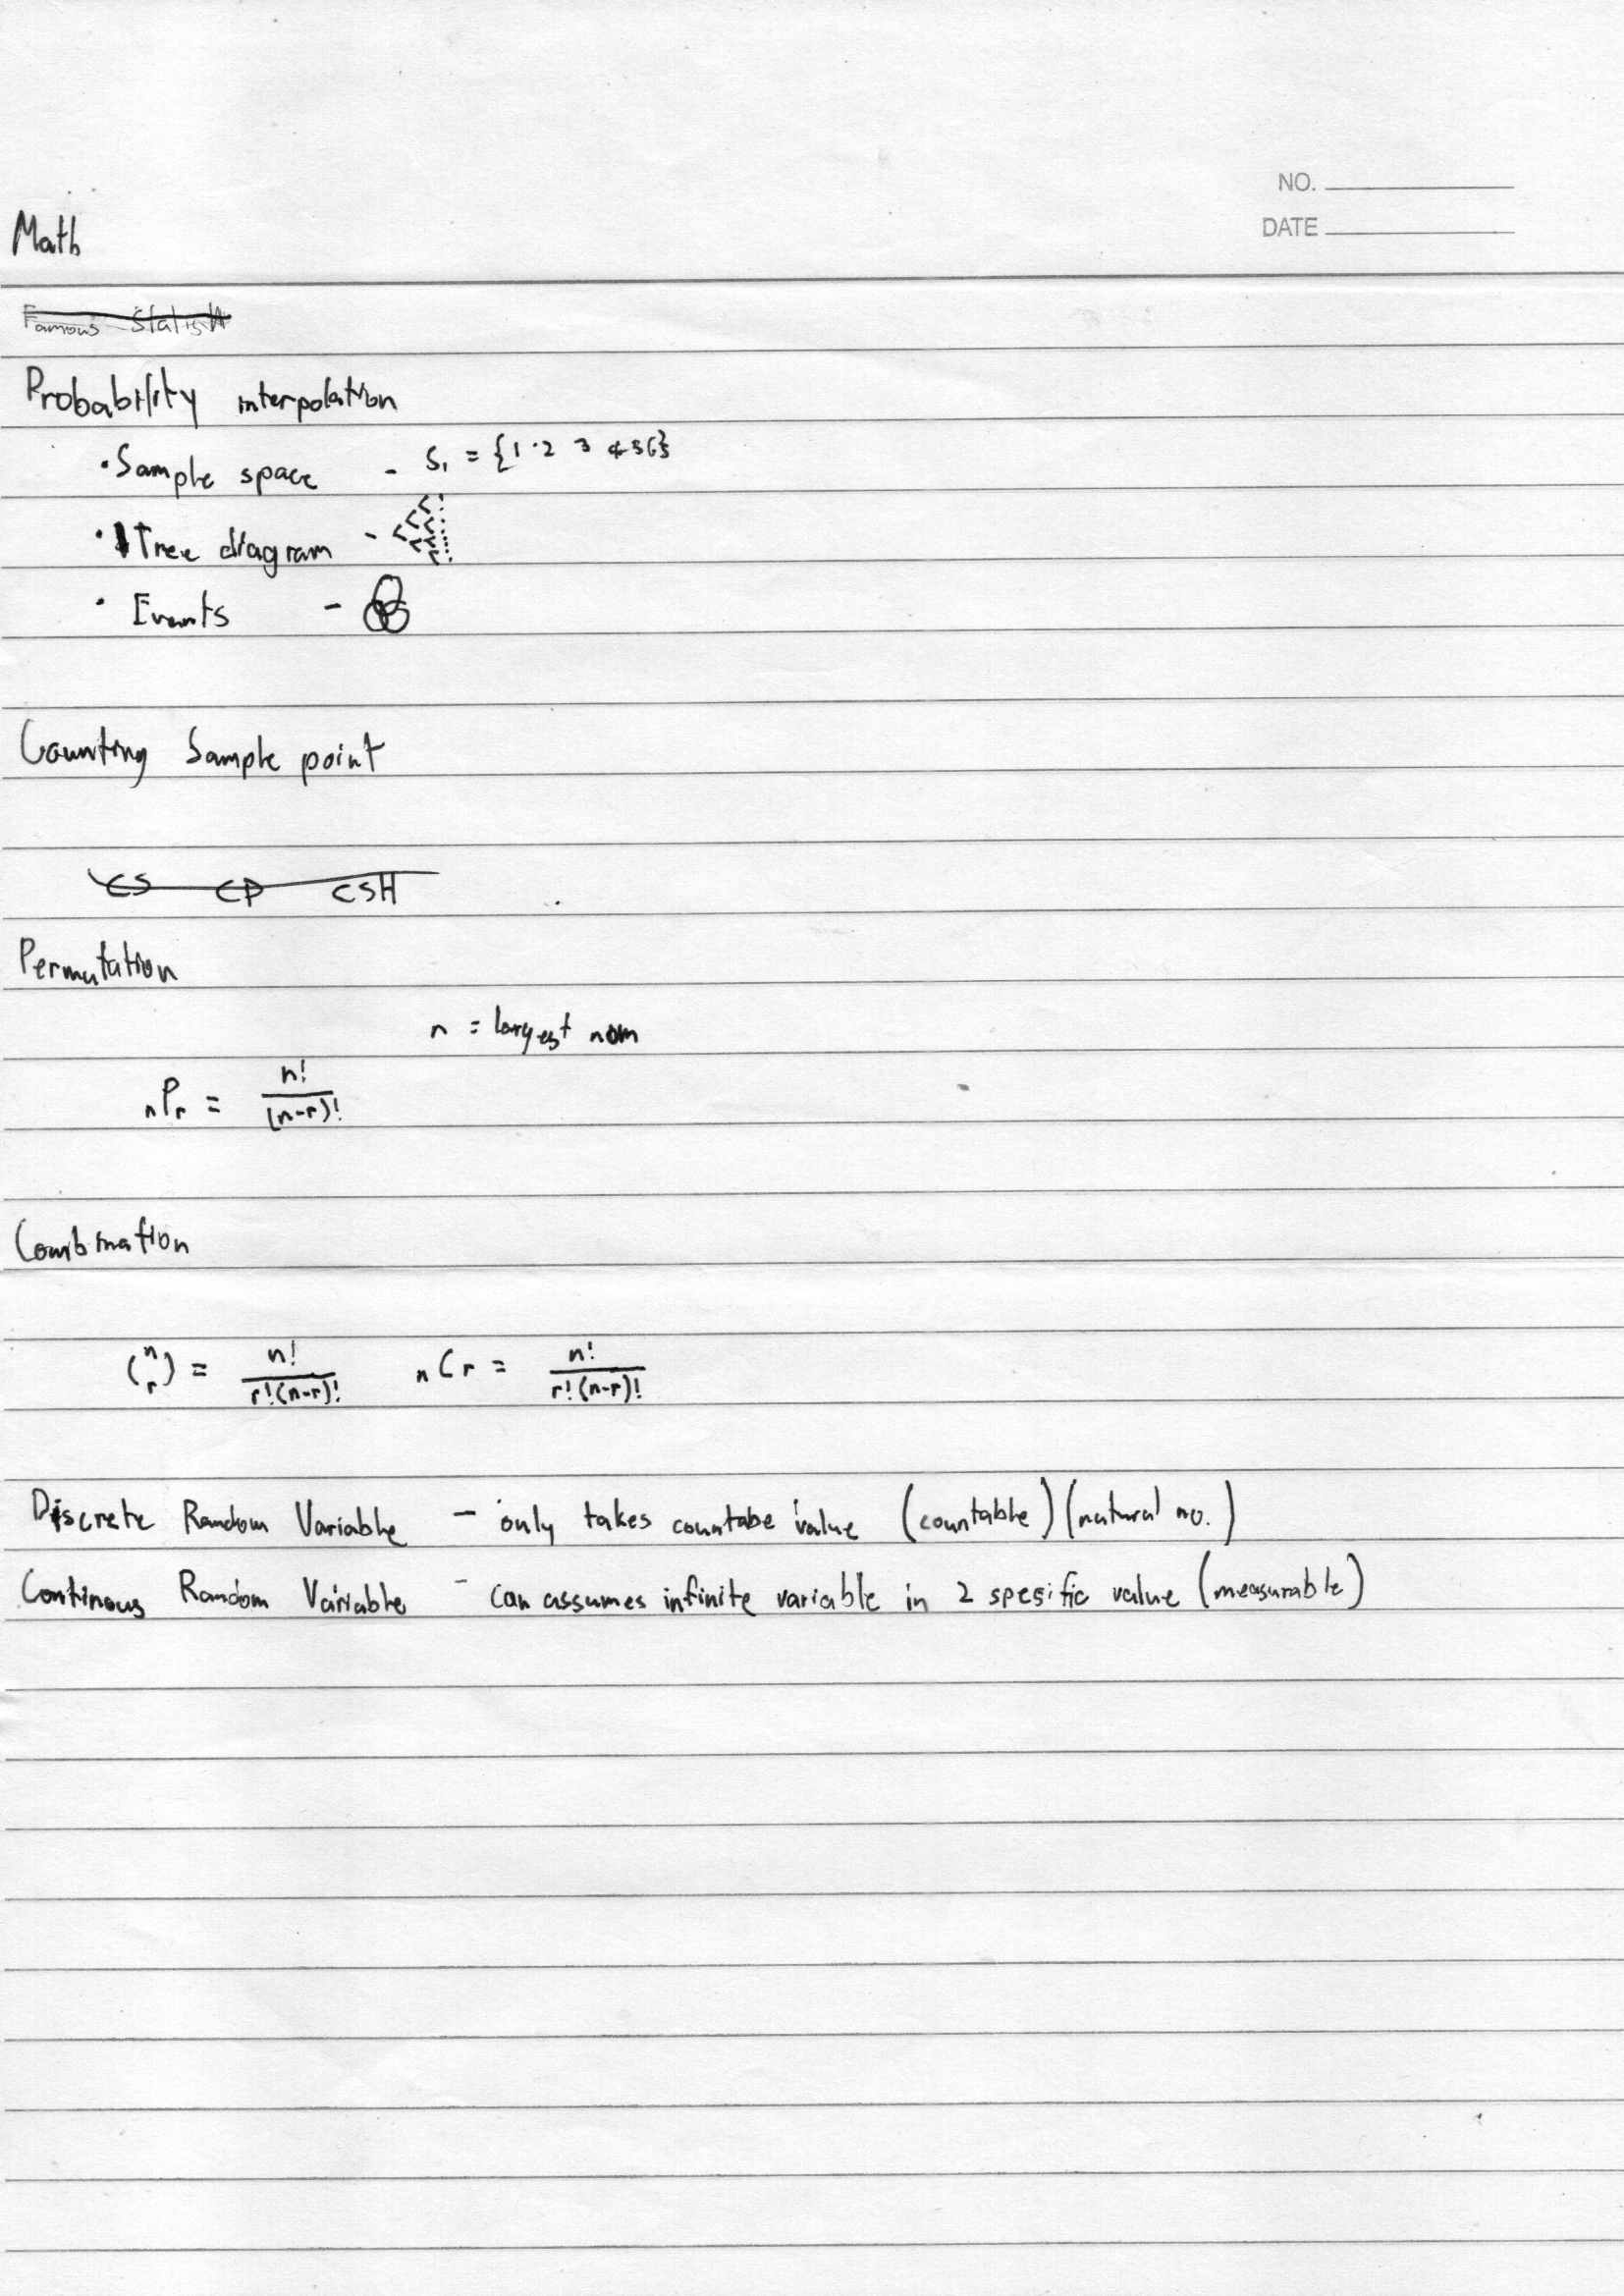 NO.
DATE
Math
Famous Statist
Probability interpolation
• Sample space - S₁ = {1 2 3 4 5 6}
• Tree diagram -
• Events -
Counting Sample point
CS CP CSH
Permutation
n = largest nom
nPr = n!/(n-r)!
Combination
(n r) = n!/r!(n-r)! nCr = n!/r!(n-r)!
Discrete Random Variable - only takes countabe value (countable) (natural no.)
Continous Random Variable - can assumes infinite variable in 2 spesific value (measurable)